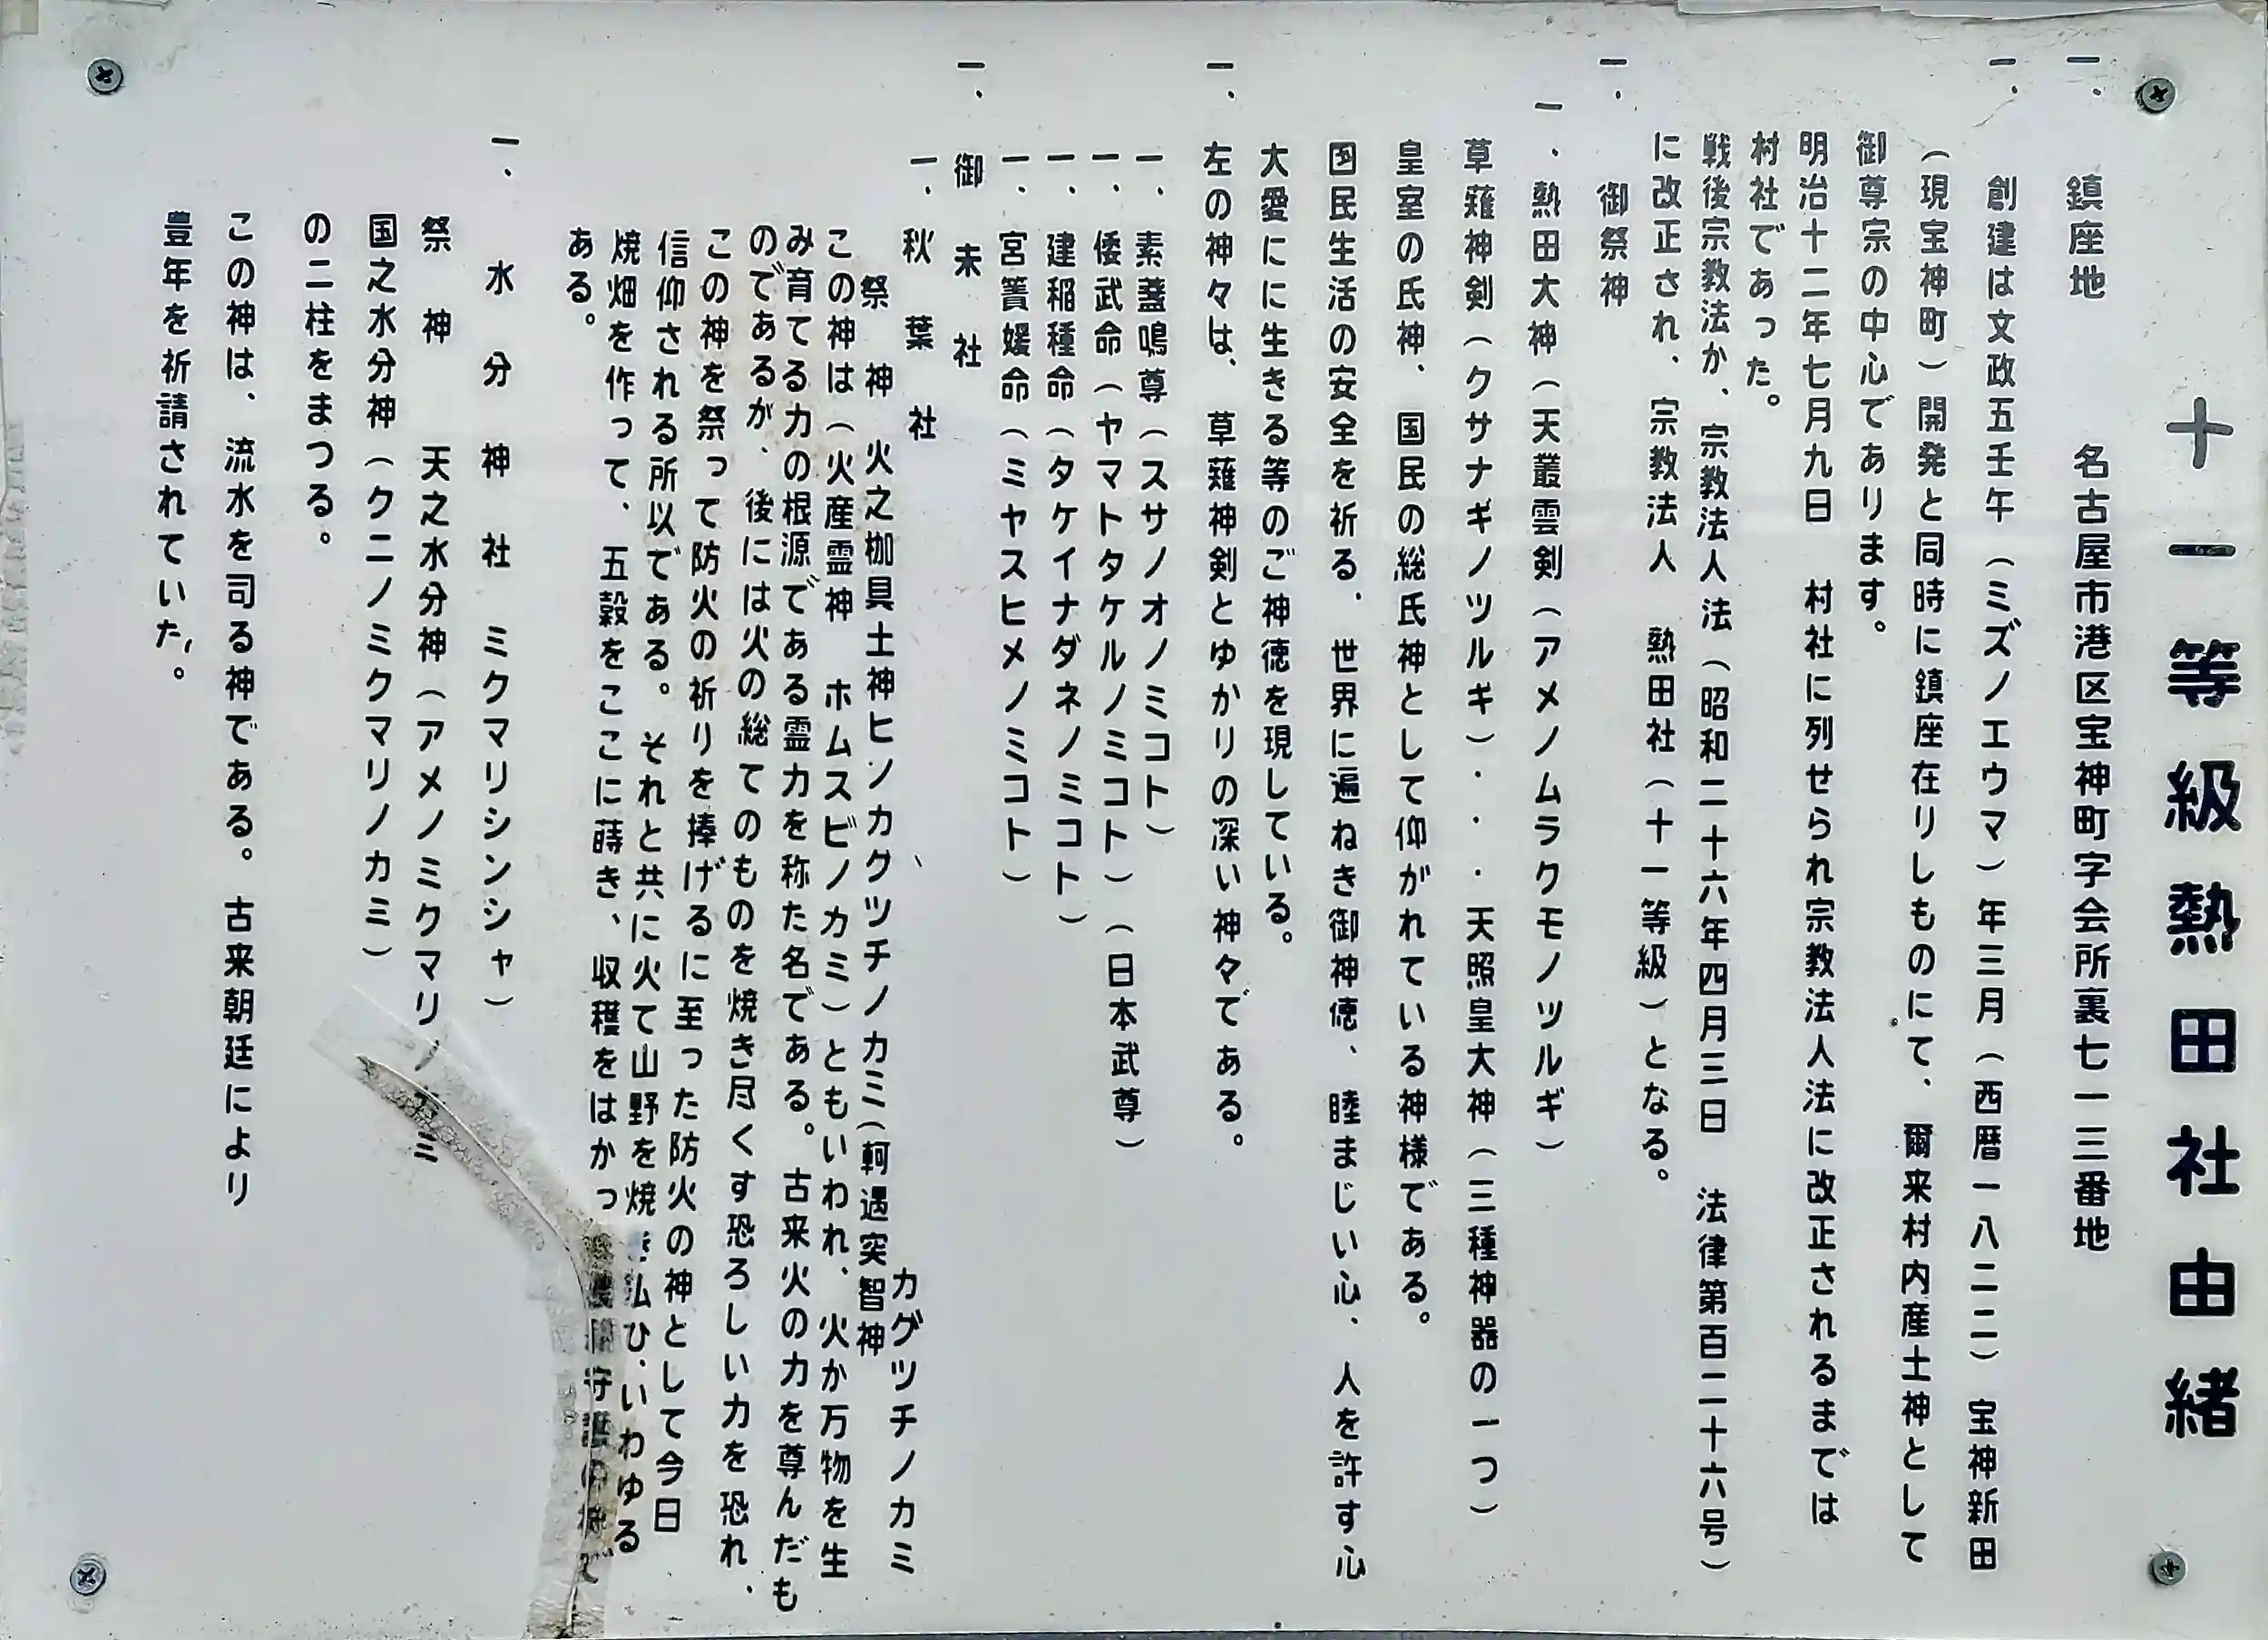 十一等級熱田社由緒
一、鎮座地　名古屋市港区宝神町字会所裏七一三番地
一、創建は文政五壬午（ミズノエウマ）年三月（西暦一八二二）宝神新田
（現宝神町）開発と同時に鎮座在りしものにて、爾来村内産土神として
御尊宗の中心であります。
明治十二年七月九日　村社に列せられ宗教法人法に改正されるまでは
村社であった。
戦後宗教法か、宗教法人法（昭和二十六年四月三日　法律第百二十六号）
に改正され、宗教法人　熱田社（十一等級）となる。
一、御祭神
一、熱田大神（天叢雲剣（アメノムラクモノツルギ）
草薙神剣（クサナギノツルギ）・・・天照皇大神（三種神器の一つ）
皇室の氏神、国民の総氏神として仰がれている神様である。
国民生活の安全を祈る、世界に遍ねき御神徳、睦まじい心、人を許す心
大愛にに生きる等のご神徳を現している。
一、左の神々は、草薙神剣とゆかりの深い神々である。
一、素盞鳴尊（スサノオノミコト）
一、倭武命（ヤマトタケルノミコト）（日本武尊）
一、建稲種命（タケイナダネノミコト）
一、宮簀媛命（ミヤスヒメノミコト）
一、御末社
一、秋葉社
カグツチノカミ
祭神　火之枷具土神ヒノカグツチノカミ（軻遇突智神
この神は（火産霊神　ホムスビノカミ）ともいわれ、火か万物を生
み育てる力の根源である霊力を称た名である。古来火の力を尊んだも
のであるが、後には火の総てのものを焼き尽くす恐ろしい力を恐れ、
この神を祭って防火の祈りを捧げるに至った防火の神として今日
信仰される所以である。それと共に火て山野を焼き払ひ、いわゆる
焼畑を作って、五穀をここに蒔き、収穫をはかっ守護の神で
ある。
一、水分神社　ミクマリシンシャ）
祭神　天之水分神（アメノミクマリノカミ
国之水分神（クニノミクマリノカミ）
の二柱をまつる。
この神は、流水を司る神である。古来朝廷により
豊年を祈請されていた。